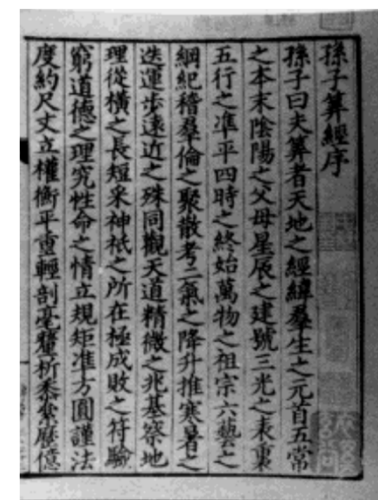 孫子算經序
孫子曰夫算者天地之經緯羣生之元首五常
之本末陰陽之父母星辰之建號三光之表裏
五行之准平四時之終始萬物之祖宗六藝之
綱紀稽羣倫之聚散考二氣之降升推寒暑之
迭運步遠近之殊同觀天道精微之兆基察地
理從橫之長短采神祇之所在極成敗之符驗
窮道德之理究性命之情立規矩准方圓謹法
度約尺丈立權衡平重輕剖毫釐析黍絫歷億